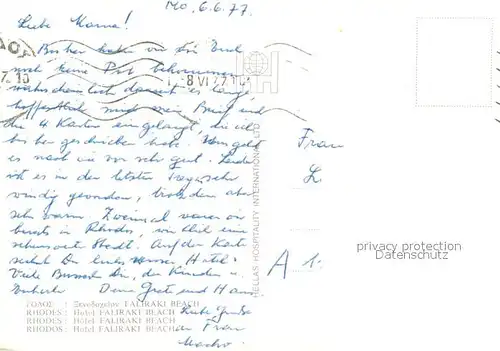 Mo, 6.6.77.
Liebe Mama!
Bisher haben wir von Dir
noch keine Post bekommen,
wahrscheinlich dauert es lange,
hoffentlich sind mein Brief und
die 4 Karten eingelangt, die ich
bisher geschrieben habe. Uns geht
es nach wie vor sehr gut. Leider
ist es in den letzten Tagen sehr
windig geworden, trotzdem aber
sehr warm. Zweimal waren wir
bereits in Rhodos, eine
sehenswerte Stadt. Auf der Karte
siehst Du unser Hotel.
Viele Bussi Dir, den Kindern u.
Deine Gret und Hans
Liebe Grüße
an Frau
-8 VI 77
Frau
L
A 1
HELLAS HOSPITALITY INTERNATIONAL LTD
privacy protection
Datenschutz
ΡΟΔΟΣ : Ξενοδοχεῖον FALIRAKI BEACH
RHODES : Hotel FALIRAKI BEACH
RHODES : Hôtel FALIRAKI BEACH
RHODOS : Hotel FALIRAKI BEACH